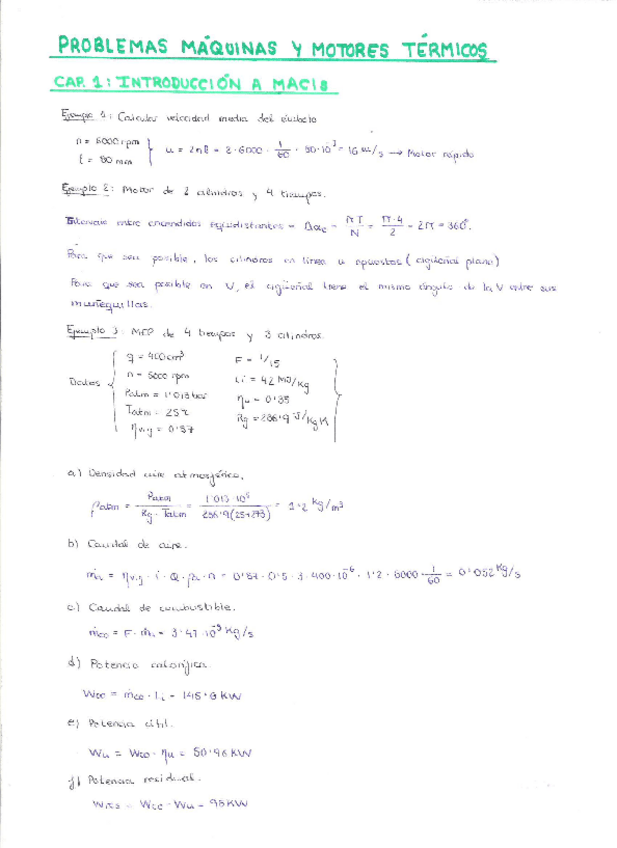 PROBLEMAS MÁQUINAS Y MOTORES TÉRMICOS
CAP. 1: INTRODUCCIÓN A MACIS
Ejemplo 1: Calcular velocidad media del émbolo
n = 6000 rpm
l = 80 mm
u = 2nl = 2 · 6000 · 1/60 · 80·10⁻³ = 16 m/s → Motor rápido
Ejemplo 2: Motor de 2 cilindros y 4 tiempos.
Intervalo entre encendidos equidistantes = Δαe = πT/N = π·4/2 = 2π = 360°.
Para que sea posible, los cilindros en línea u opuestos (cigüeñal plano)
Para que sea posible en V, el cigüeñal tiene el mismo ángulo de la V entre sus
muñequillas.
Ejemplo 3: MEP de 4 tiempos y 3 cilindros.
Datos
q = 400 cm³
n = 5000 rpm
Patm = 1'013 bar
Tatm = 25
F = 1/15
Li = 42 MJ/kg
ηu = 0'35
Rg = 286'9 J/kg K
a) Densidad aire atmosférico.
ρatm = Patm / Rg · Tatm = 1'013·10⁵ / 286'9(25+273) = 1'2 kg/m³
b) Caudal de aire.
= 0'052 kg/s
c) Caudal de combustible.
ṁco = F · ṁa = 3'47·10⁻³ kg/s
d) Potencia calorífica.
Wcc = ṁco · Li = 145'6 KW
e) Potencia útil.
Wu = Wcc · ηu = 50'96 KW
f) Potencia residual.
Wres = Wcc - Wu = 95 KW